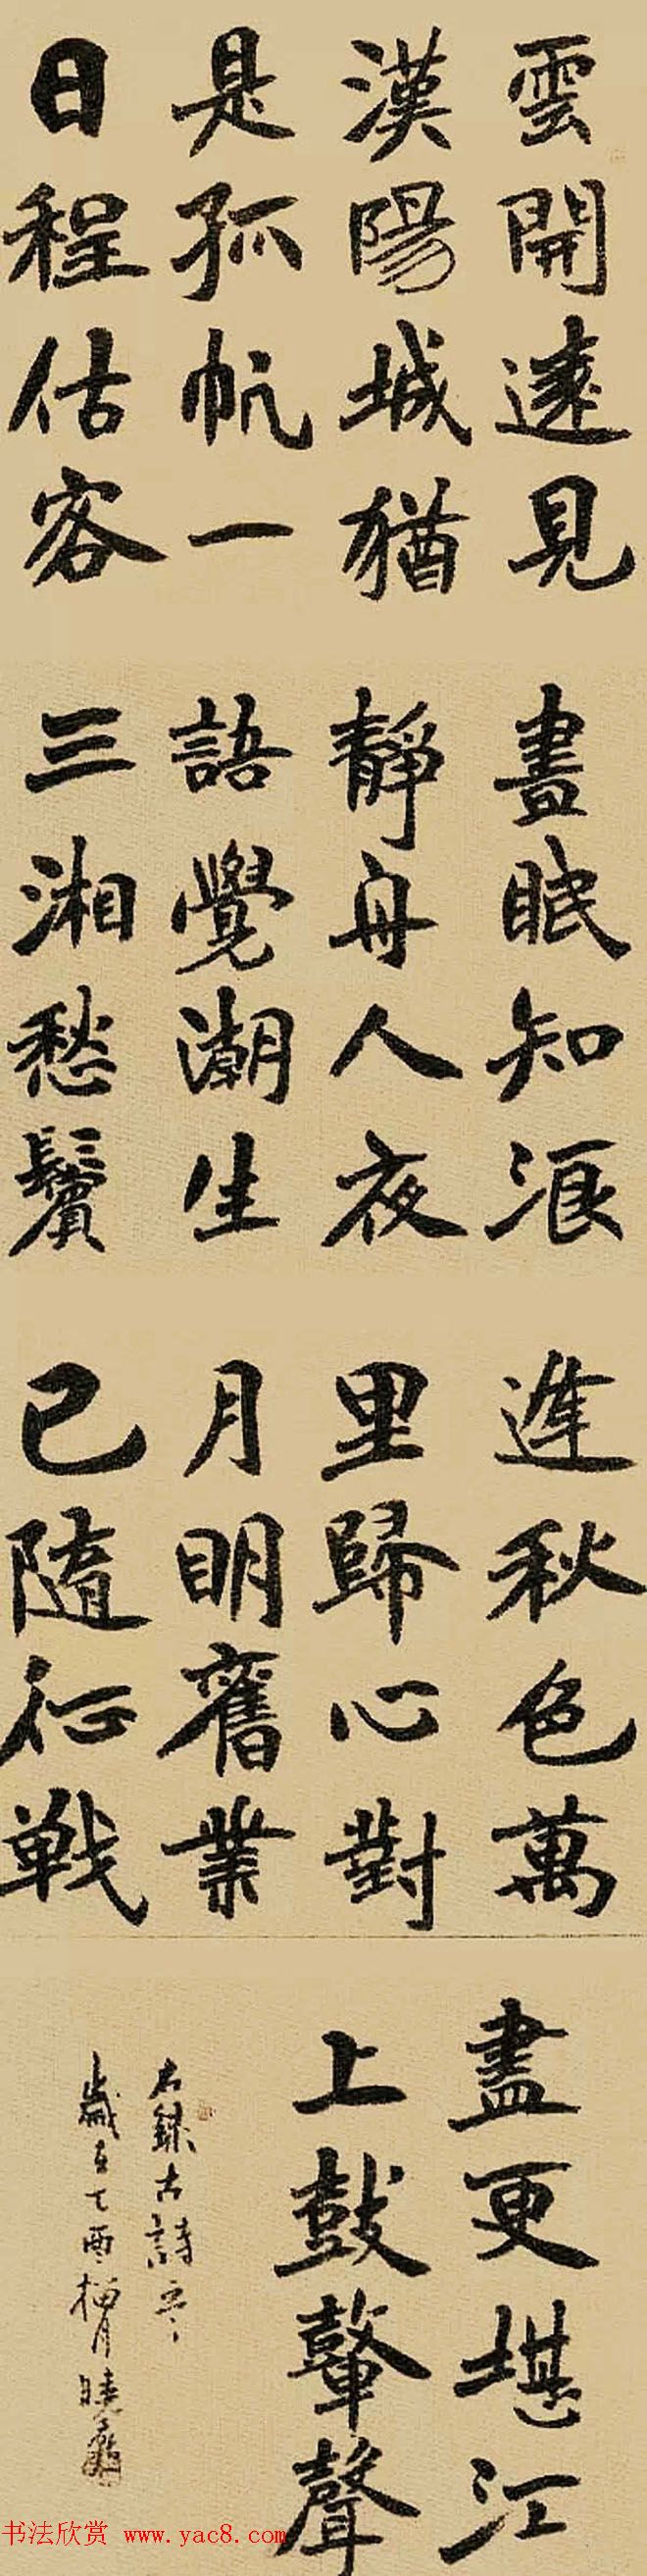 雲開遠見
漢陽城猶
是孤帆一
日程估客
晝眠知浪
靜舟人夜
語覺潮生
三湘愁鬢
逢秋色萬
里歸心對
月明舊業
已隨征戰
盡更堪江
上鼓鼙聲
右錄古詩
歲在乙酉 月曉
书法欣赏 www.yac8.com